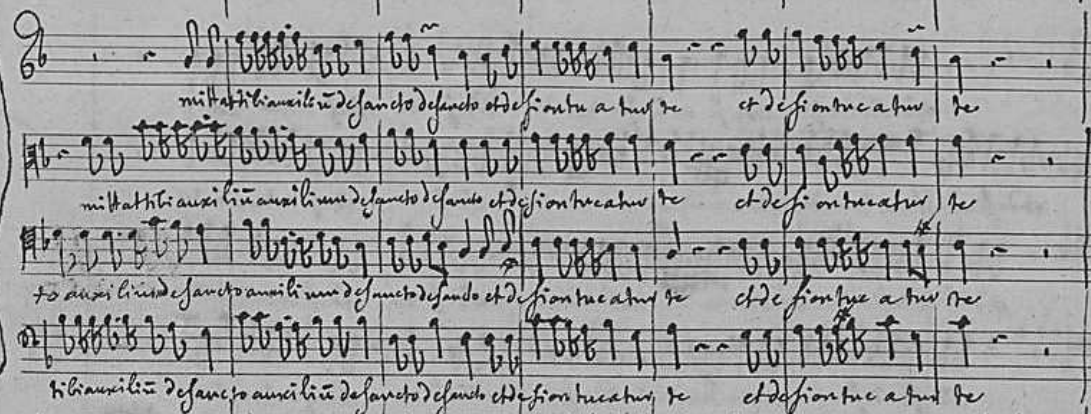 mittat tibi auxiliũ de sancto de sancto et de sion tu a tur te et de sion tuea tur te
mittat tibi auxiliũ auxilium de sancto de sancto et de sion tueatur te et de sion tueatur te
to auxilium de sancto auxilium de sancto de sancto et de sion tueatur te et de sion tue a tur te
tibi auxiliũ de sancto auxiliũ de sancto de sancto et de sion tueatur te et de sion tue a tur te